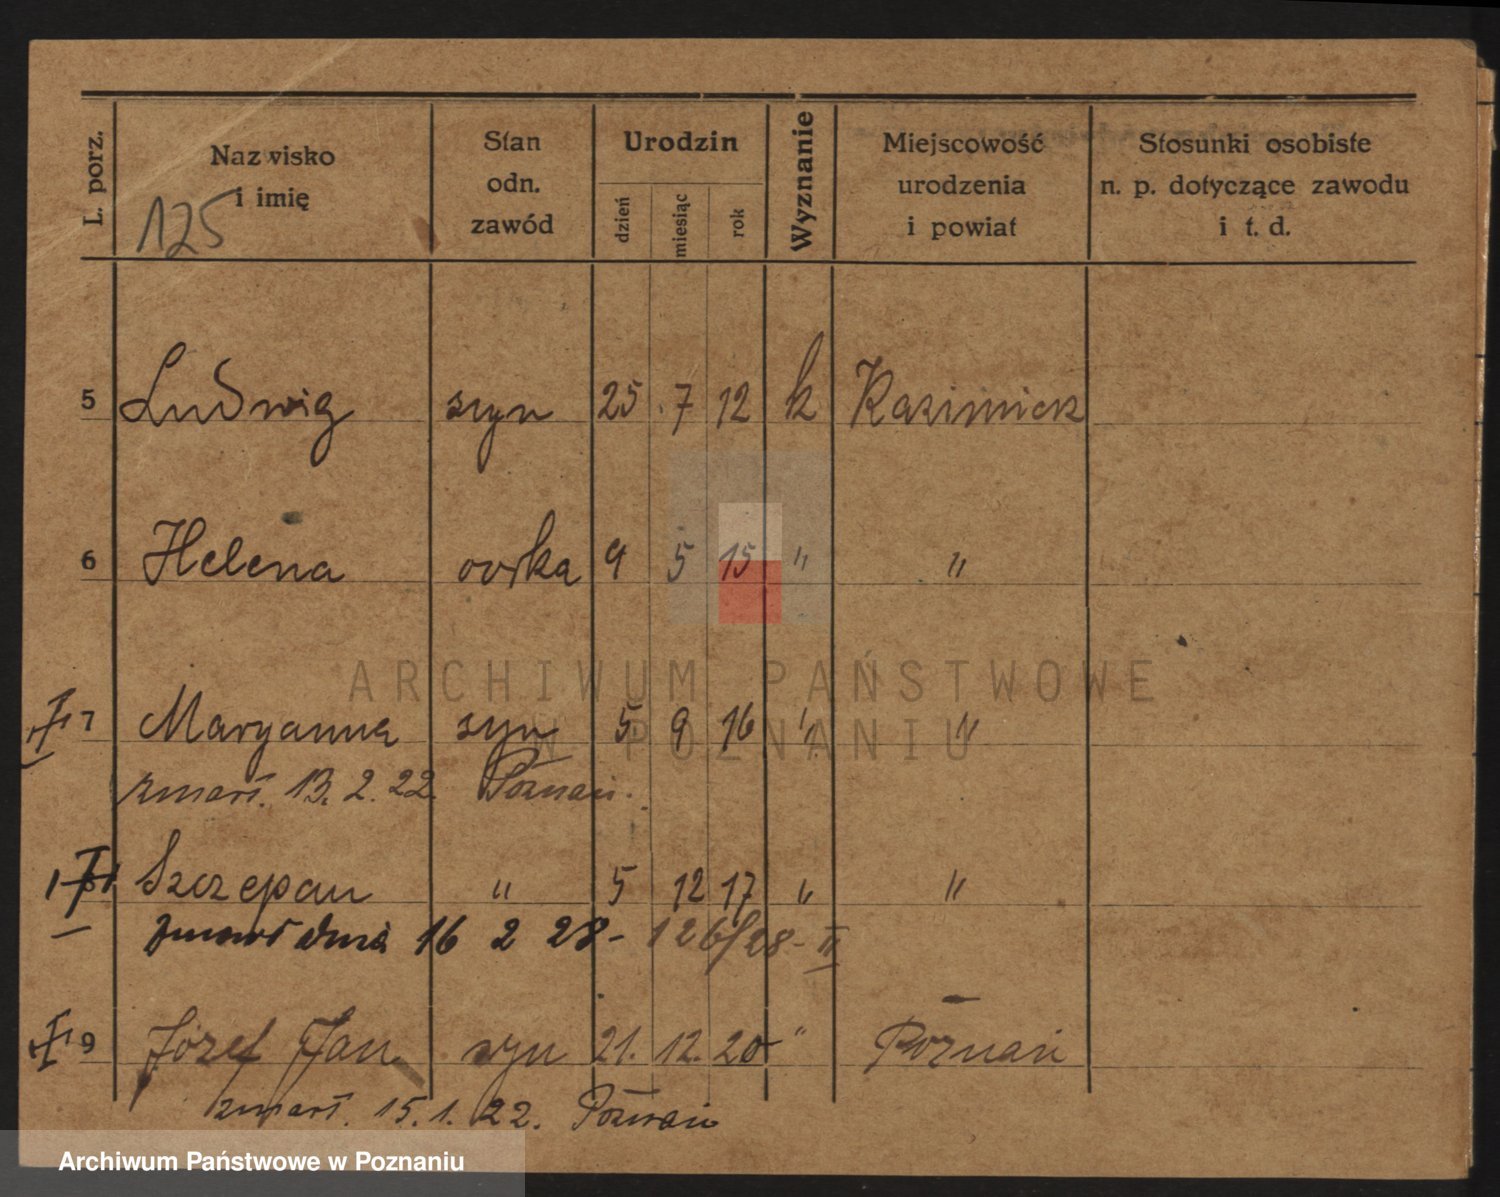 L. porz.
Nazwisko
i imię
125
Stan
odn.
zawód
Urodzin
dzień
miesiąc
rok
Wyznanie
Miejscowość
urodzenia
i powiat
Stosunki osobiste
n. p. dotyczące zawodu
i t. d.
5 Ludwig syn 25 . 7 12 k Kazimierz
6 Helena córka 9 5 15 " "
7 Maryanna syn 5 9 16 " "
zmarł. 13. 2. 22. Poznań.
8 Szczepan " 5 12 17 " "
zmarł dnia 16 2 28 - 126/28 - II
9 Józef Jan syn 21. 12. 20 " Poznań
zmarł. 15. 1. 22. Poznań
ARCHIWUM PAŃSTWOWE
W POZNANIU
Archiwum Państwowe w Poznaniu